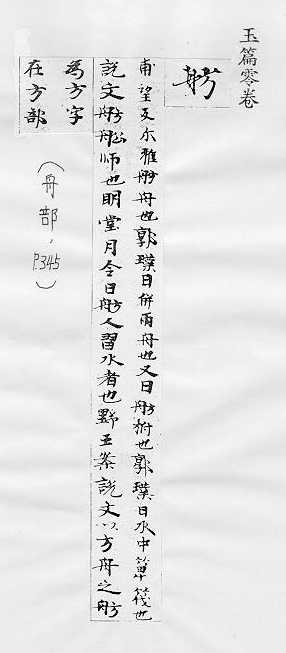 玉篇零卷
舫
甫望反尒雅舫舟也郭璞曰併兩舟也又曰舫泭也郭璞曰水中箄筏也
說文舫舩师也明堂月令曰舫人習水者也野王案說文以方舟之舫
為方字
在方部
（舟部，P.345）